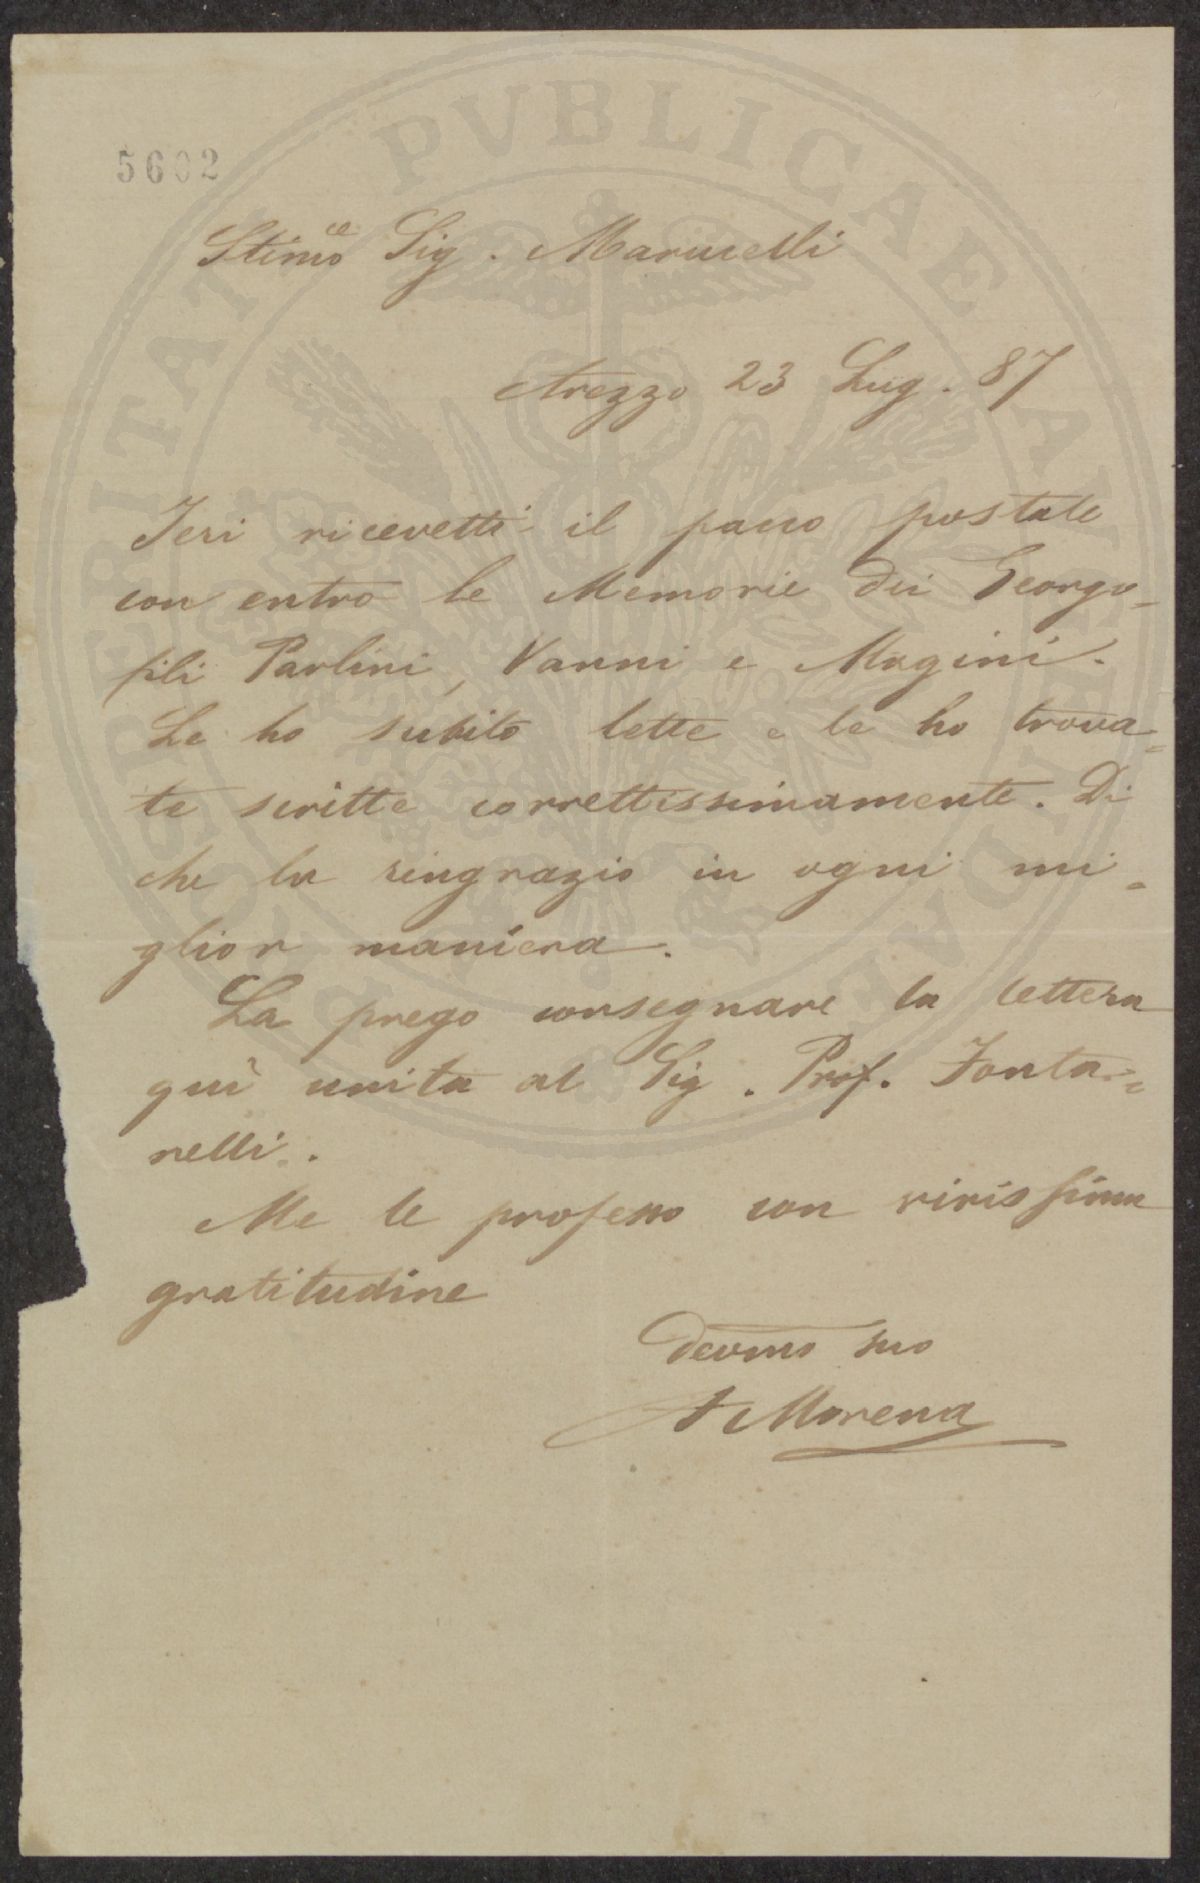 5602
Stimo Sig. Marucelli
Arezzo 23 Lug. 87
Ieri ricevetti il pacco postale
con entro le Memorie dei Georgo-
fili Parlini, Vanni e Magini.
Le ho subito lette e le ho trova=
te scritte correttissimamente. Di
che la ringrazio in ogni mi-
glior maniera.
La prego consegnare la lettera
quì unita al Sig. Prof. Fonta=
nelli.
Me le professo con vivissima
gratitudine
Devmo suo
A Morena
PROSPERITATI PVBLICAE AVGENDAE